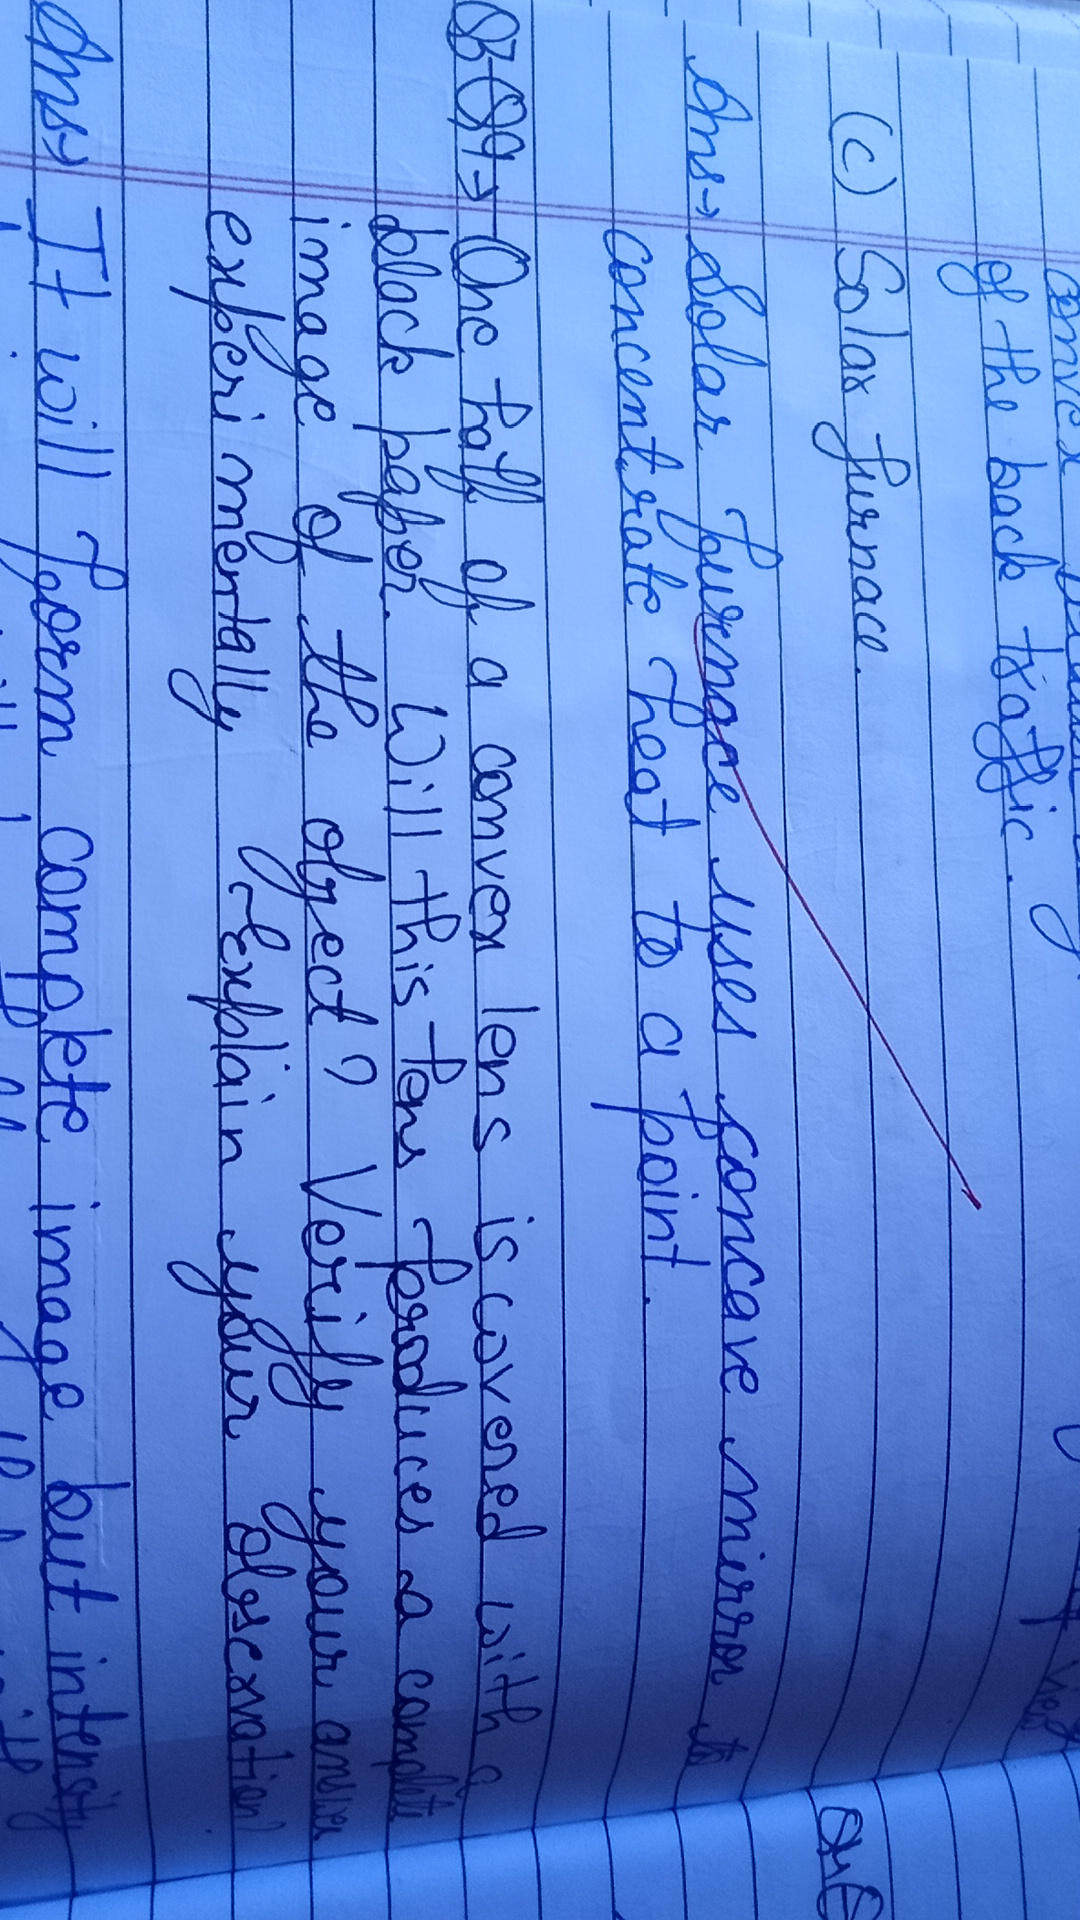 convex
of the back traffic.
(c) Solar furnace.
Ans→ Solar furnace uses concave mirror to
concentrate heat to a point.
Q9→ One half of a convex lens is covered with a
black paper. Will this lens produces a complete
image of the object? Verify your answer
experimentally. Explain your observation?
Ans→ It will form complete image but intensity